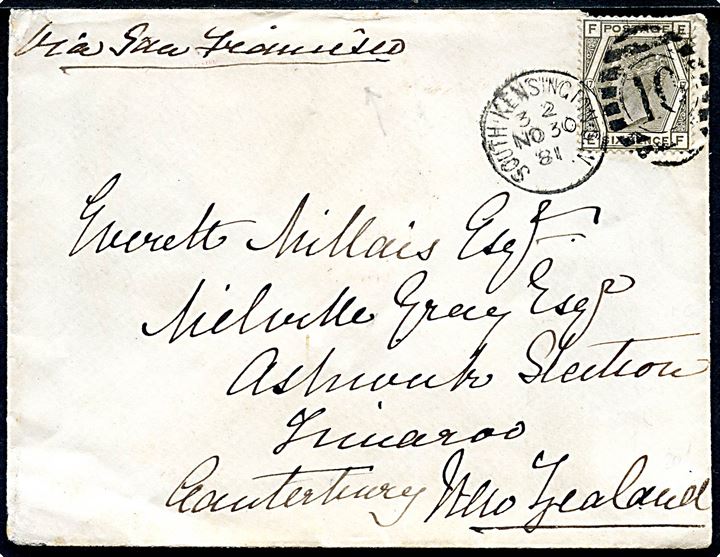 Via San Francisco
F POSTAGE E
E SIXPENCE F
SOUTH KENSINGTON S.W
3 2
NO 30
81
Everett Millais Esqr
Melville Gray Esqr
Ashwick Station
Timaroo
Canterbury New Zealand